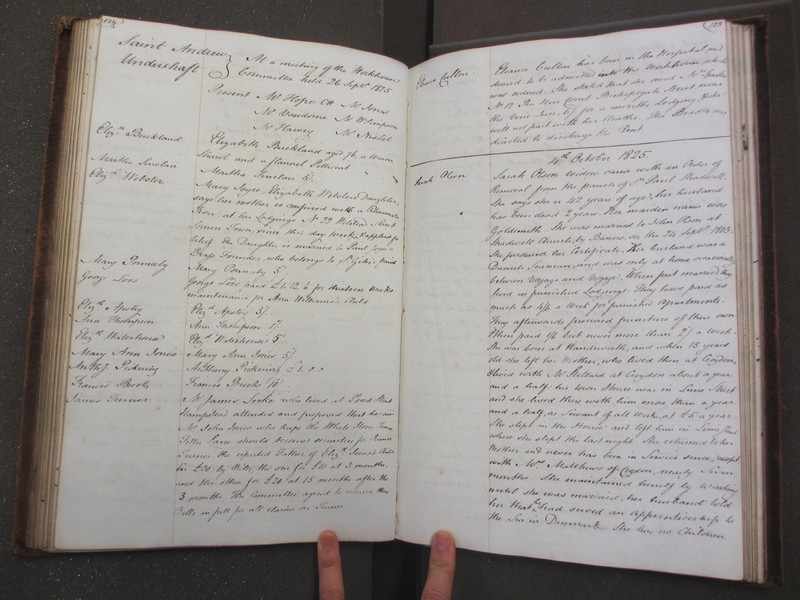 124
Saint Andrew
Undershaft
At a meeting of the Workhouse
Committee held 26 Septr 1825
Present Mr Hope CW Mr Jones
Mr Vandome Mr W. Simpson
Mr Harvey Mr Nichol
Elizth Buckland
Elizabeth Buckland aged 76 a Warm
Shawl and a flannel Petticoat
Martha Sinclair
Martha Sinclair 5/.
Elizth Webster
Mary Joyce, Elizabeth Webster's Daughter
says her mother is confined with a Rheumatic
at her Lodgings No 22
Town, since this day week, & applied for
relief. The Daughter is married to Paul Joyce a
Brass Founder, who belongs to St Giles's, paid
Mary Ponnerly
Mary 5/.
George Loos
George Loos paid £1.12.6 for thirteen weeks
maintenance for Ann Williams's Child
Elizth Apsley
Elizth Apsley 5/.
Ann Thompson
Ann Thompson 1/.
Elizth Waterhouse
Elizth Waterhouse 5/.
Mary Ann Jones
Mary Ann Jones 5/.
Anthoy Pickering
Anthony Pickering £1.0.0
Francis Brooks
Francis Brooks 10/.
James Turner
Mr James who lives at Pond Street
Hampstead attended and proposed that he and
Mr John Jones who keeps the White Horse
Fetter Lane should become securities for James
Turner the reputed Father of Elizth Jones's Child
in £20, by Bills, the one for £10 at 3 months,
and the other for £20 at 15 months after the
3 months. The Committee agreed to receive these
Bills in full for all claims on Turner
125
Eleanor Cullen
Eleanor Cullen has been in the Hospital and
desired to be admitted into the Workhouse which
was ordered. She stated that she owed Mr
No 12 Court Bishopsgate Street near
the for a months Lodging, & he
will not part with her Clothes. The Beadle was
directed to discharge the Rent
4th October 1825.
Sarah Olson
Sarah Olson widow came with an Order of
Removal from the parish of St Paul Shadwell
She says she is 42 years of age; her husband
has been dead 2 years. Her maiden name was
Goldsmith. She was married to John Olson at
Shadwell Church, by Banns, on the 24 Septr 1803.
She produced her Certificate. Her husband was a
Danish Seaman, and was only at home occasionally
between voyage and voyage. When first married they
lived in furnished Lodgings. They have paid as
much as 4/6 a week for furnished Apartments.
They afterwards procured furniture of their own
& then paid 1/6 but never more than 2/ a week.
She was born at Wandsworth, and when 15 years
old she left her Mother, who lived then at Croydon,
& lived with Mr Stellard at Croydon about a year
and a half; his town House was in Lime Street
and she lived there with him more than a year
and a half, as Servant of all work, at £5 a year.
She slept in the House and left him in Lime Street
where she slept the last night. She returned to her
Mother and never has been in Service since, except
with a Mrs Matthews of Croydon, nearly Seven
months. She maintained herself by working
until she was married. Her husband told
her that he had served an Apprenticeship to
the Sea in Denmark. She has no Children